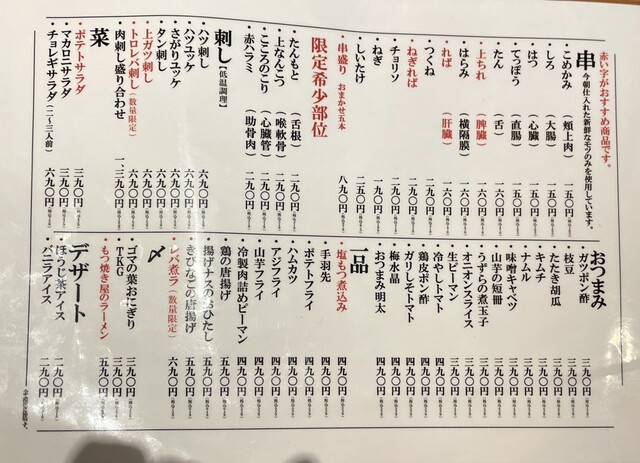 赤い字がおすすめ商品です。
串 今朝仕入れた新鮮なモツのみを使用しています。
・こめかみ（頬上肉） 一五〇円
・しろ（大腸） 一五〇円
・はつ（心臓） 一五〇円
・てっぽう（直腸） 一五〇円
・たん（舌） 一六〇円
・上ちれ（脾臓） 一六〇円
・はらみ（横隔膜） 一六〇円
・れば（肝臓） 一六〇円
・つくね 一九〇円
・ねぎれば 一九〇円
・チョリソ 一九〇円
・ねぎ 一五〇円
・しいたけ 二五〇円
・串盛り おまかせ五本 八九〇円
限定希少部位
・たんもと（舌根） 二九〇円
・上なんこつ（喉軟骨） 二九〇円
・こころのこり（心臓管） 二九〇円
・赤ハラミ（助骨肉） 二九〇円
刺し【低温調理】
・ハツ刺し 六九〇円
・ハツユッケ 六九〇円
・さがりユッケ 六九〇円
・タン刺し 六九〇円
・上ガツ刺し 六九〇円
・トロレバ刺し（数量限定） 六九〇円
・肉刺し盛り合わせ 一、三九〇円
菜
・ポテトサラダ 三九〇円
・マカロニサラダ 三九〇円
・チョレギサラダ（二〜三人前） 六九〇円
おつまみ
・ガツポン酢 三九〇円
・枝豆 三九〇円
・たたき胡瓜 三九〇円
・キムチ 三九〇円
・ナムル 三九〇円
・味噌キャベツ 三九〇円
・山芋の短冊 三九〇円
・うずらの煮玉子 三九〇円
・オニオンスライス 三九〇円
・生ピーマン 三九〇円
・冷やしトマト 四九〇円
・ガリしそトマト 四九〇円
・鶏皮ポン酢 四九〇円
・梅水晶 四九〇円
・おつまみ明太 四九〇円
一品
・塩もつ煮込み 四九〇円
・手羽先 四九〇円
・ポテトフライ 四九〇円
・ハムカツ 四九〇円
・アジフライ 四九〇円
・山芋フライ 四九〇円
・冷製肉詰めピーマン 四九〇円
・鶏の唐揚げ 五九〇円
・揚げナスのおひたし 四九〇円
・きびなごの唐揚げ 五九〇円
・レバ煮ラ（数量限定） 六九〇円
〆
・ゴマの葉おにぎり 三九〇円
・TKG 三九〇円
・もつ焼き屋のラーメン 五九〇円
デザート
・ほうじ茶アイス 二九〇円
・バニラアイス 二九〇円